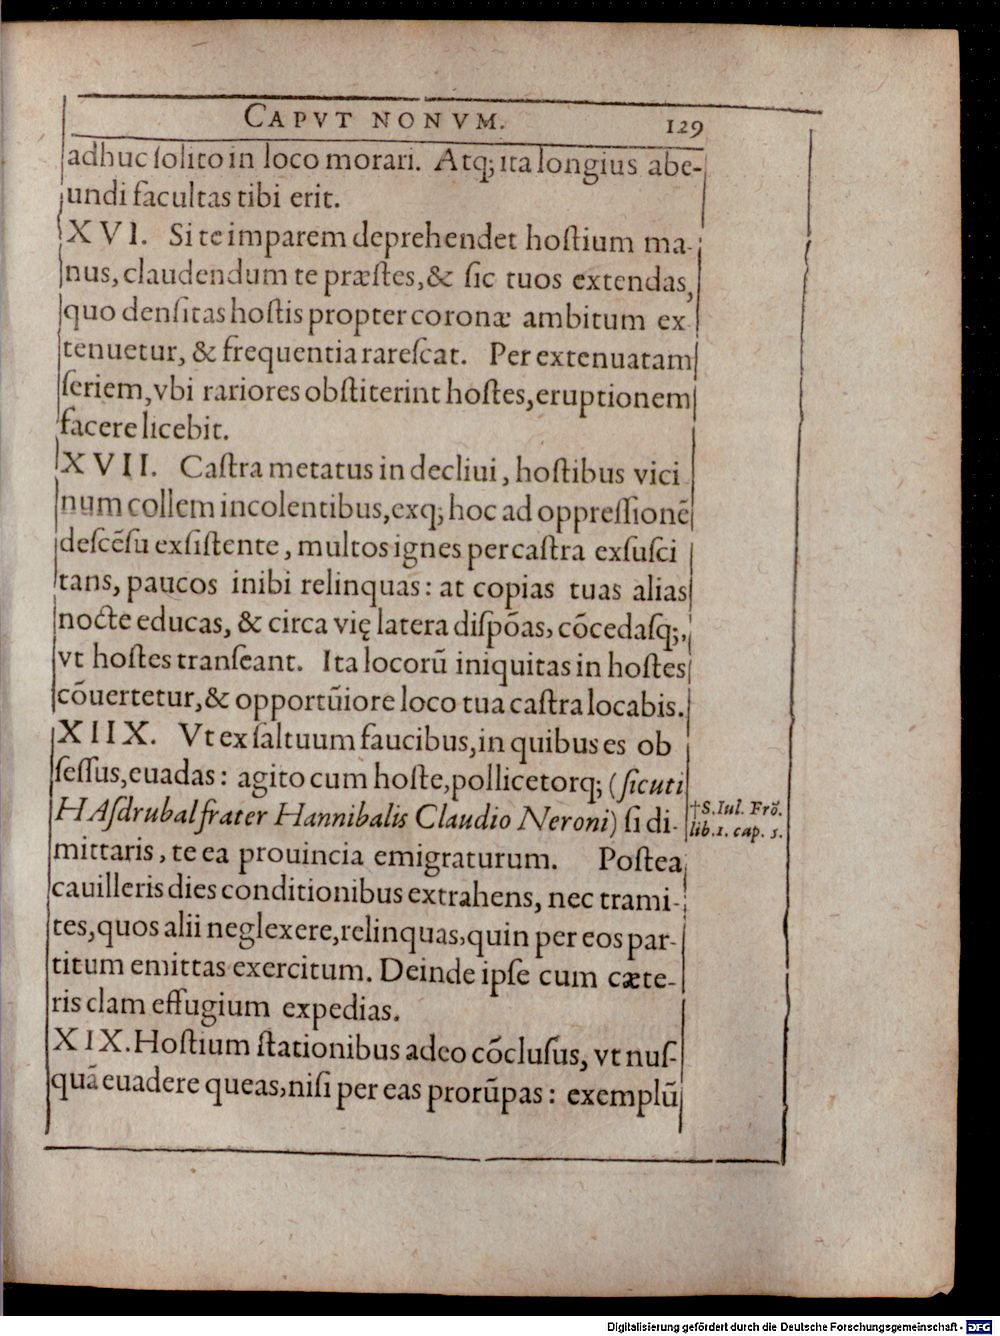 CAPVT NONVM. 129
adhuc ſolito in loco morari. Atq; ita longius abe-
undi facultas tibi erit.
XVI. Si te imparem deprehendet hoſtium ma-
nus, claudendum te præſtes, & ſic tuos extendas,
quo denſitas hoſtis propter coronæ ambitum ex
tenuetur, & frequentia rareſcat. Per extenuatam
ſeriem, vbi rariores obſtiterint hoſtes, eruptionem
facere licebit.
XVII. Caſtra metatus in decliui, hoſtibus vici
num collem incolentibus, exq; hoc ad oppreſſionē
deſcēſu exſiſtente, multos ignes per caſtra exſuſci
tans, paucos inibi relinquas: at copias tuas alias
nocte educas, & circa vię latera diſpōas, cōcedaſq;,
vt hoſtes tranſeant. Ita locorū iniquitas in hoſtes
cōuertetur, & opportūiore loco tua caſtra locabis.
XIIX. Vt ex ſaltuum faucibus, in quibus es ob
ſeſſus, euadas: agito cum hoſte, pollicetorq; (ſicuti
HAſdrubal frater Hannibalis Claudio Neroni) ſi di-
†S. Iul. Frō.
lib. 1. cap. 5.
mittaris, te ea prouincia emigraturum. Poſtea
cauilleris dies conditionibus extrahens, nec trami-
tes, quos alii neglexere, relinquas, quin per eos par-
titum emittas exercitum. Deinde ipſe cum cæte-
ris clam effugium expedias.
XIX. Hoſtium ſtationibus adeo cōcluſus, vt nuſ-
quā euadere queas, niſi per eas prorūpas: exemplū
Digitalisierung gefördert durch die Deutsche Forschungsgemeinschaft - DFG